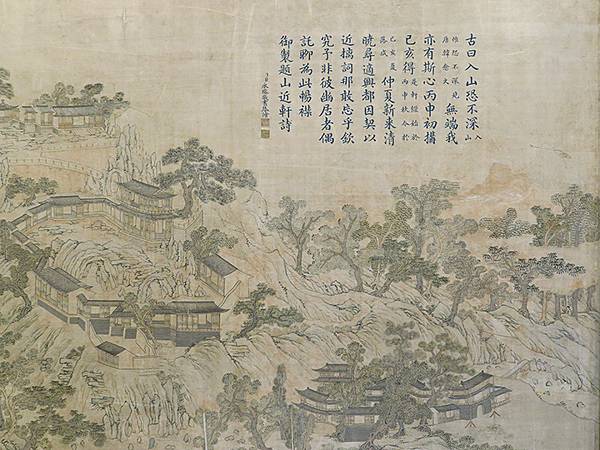 古曰入山恐不深入山
惟恐不深見唐韓愈文無端我
亦有斯心丙申初搆
己亥得是軒經始於丙申秋今於
己亥夏落成仲夏新來清
曉尋適興都因契以
近拙詞那敢忘乎欽
究予非彼幽居者偶
託聊為此暢襟
御製題山近軒詩